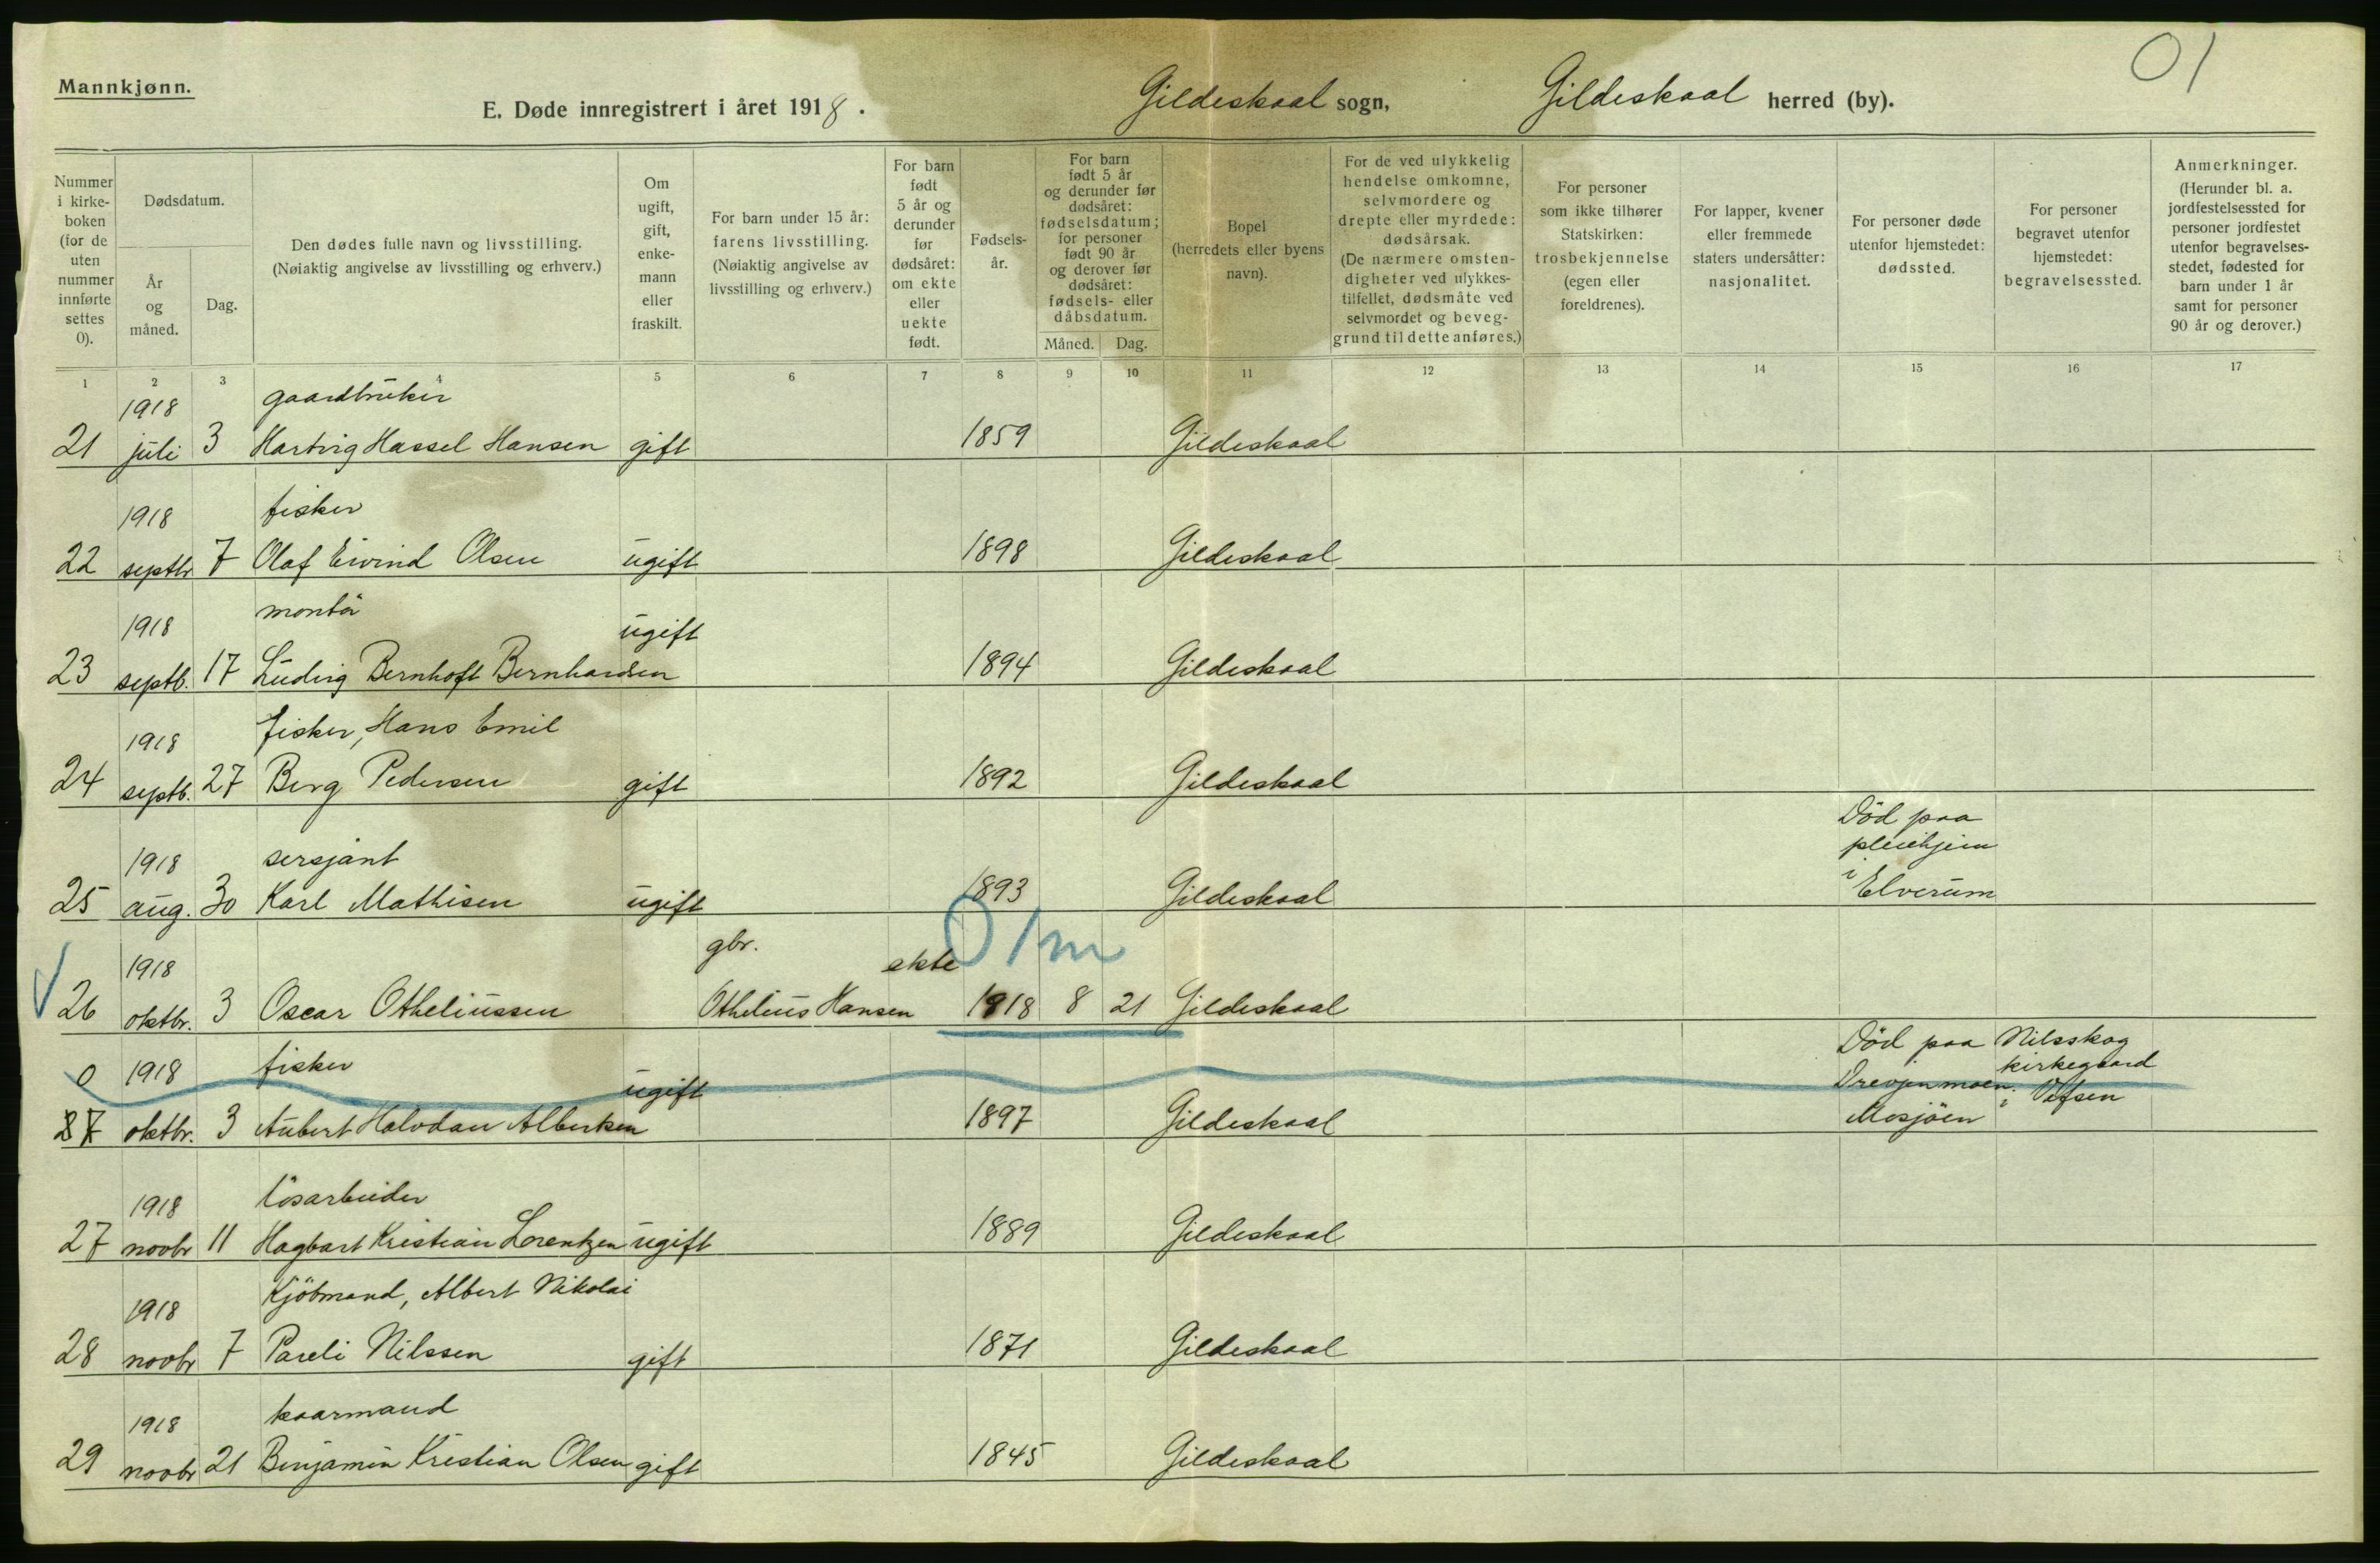 01
Mannkjønn.
E. Døde innregistrert i året 1918. Gildeskaal sogn, Gildeskaal herred (by).
Nummer i kirke-boken (for de uten nummer innførte settes 0).
Dødsdatum.
År og måned.
Dag.
Den dødes fulle navn og livsstilling.
(Nøiaktig angivelse av livsstilling og erhverv.)
Om ugift, gift, enke-mann eller fraskilt.
For barn under 15 år: farens livsstilling. (Nøiaktig angivelse av livsstilling og erhverv.)
For barn født 5 år og derunder før dødsåret: om ekte eller uekte født.
Fødsels-år.
For barn født 5 år og derunder før dødsåret: fødselsdatum; for personer født 90 år og derover før dødsåret: fødsels- eller dåbsdatum.
Måned. Dag.
Bopel (herredets eller byens navn).
For de ved ulykkelig hendelse omkomne, selvmordere og drepte eller myrdede: dødsårsak. (De nærmere omsten-digheter ved ulykkes-tilfellet, dødsmåte ved selvmordet og beveg-grund til dette anføres.)
For personer som ikke tilhører Statskirken: trosbekjennelse (egen eller foreldrenes).
For lapper, kvener eller fremmede staters undersåtter: nasjonalitet.
For personer døde utenfor hjemstedet: dødssted.
For personer begravet utenfor hjemstedet: begravelsessted.
Anmerkninger. (Herunder bl. a. jordfestelsessted for personer jordfestet utenfor begravelses-stedet, fødested for barn under 1 år samt for personer 90 år og derover.)
1 2 3 4 5 6 7 8 9 10 11 12 13 14 15 16 17
1918 gaardbruker
21 juli 3 Hartvig Hassel Hansen gift 1859 Gildeskaal
1918 fisker
22 septbr 7 Olaf Eivind Olsen ugift 1898 Gildeskaal
1918 montör ugift
23 septb. 17 Ludvig Bernhoft Bernhardsen 1894 Gildeskaal
1918 fisker, Hans Emil
24 septb. 27 Berg Pedersen gift 1892 Gildeskaal
Död paa
pleiehjem
1918 sersjant i
25 aug. 30 Karl Mathisen ugift 1893 Gildeskaal Elverum
01m
1918 gbr. ekte
26 oktbr. 3 Oscar Otheliussen Othelius Hansen 1918 8 21 Gildeskaal
Död paa Nilsskog
0 1918 fisker ugift kirkegaard
Drevjenmoen i Vefsen
27 oktbr. 3 Aubert Halvdan Albertsen 1897 Gildeskaal Mosjöen
1918 lösarbeider
27 novbr 11 Hagbart Kristian Lorentzen ugift 1889 Gildeskaal
1918 Kjöbmand, Albert Nikolai
28 novbr 7 Pareli Nilssen gift 1871 Gildeskaal
1918 kaarmand
29 novbr 21 Benjamin Kristian Olsen gift 1845 Gildeskaal